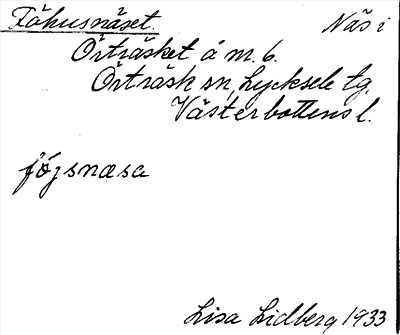 Fähusnäset. Näs i
Örträsket å nr. 6.
Örträsk sn, Lycksele tg.
Västerbottens l.
fó̱jsnæsa
Lisa Lidberg 1933